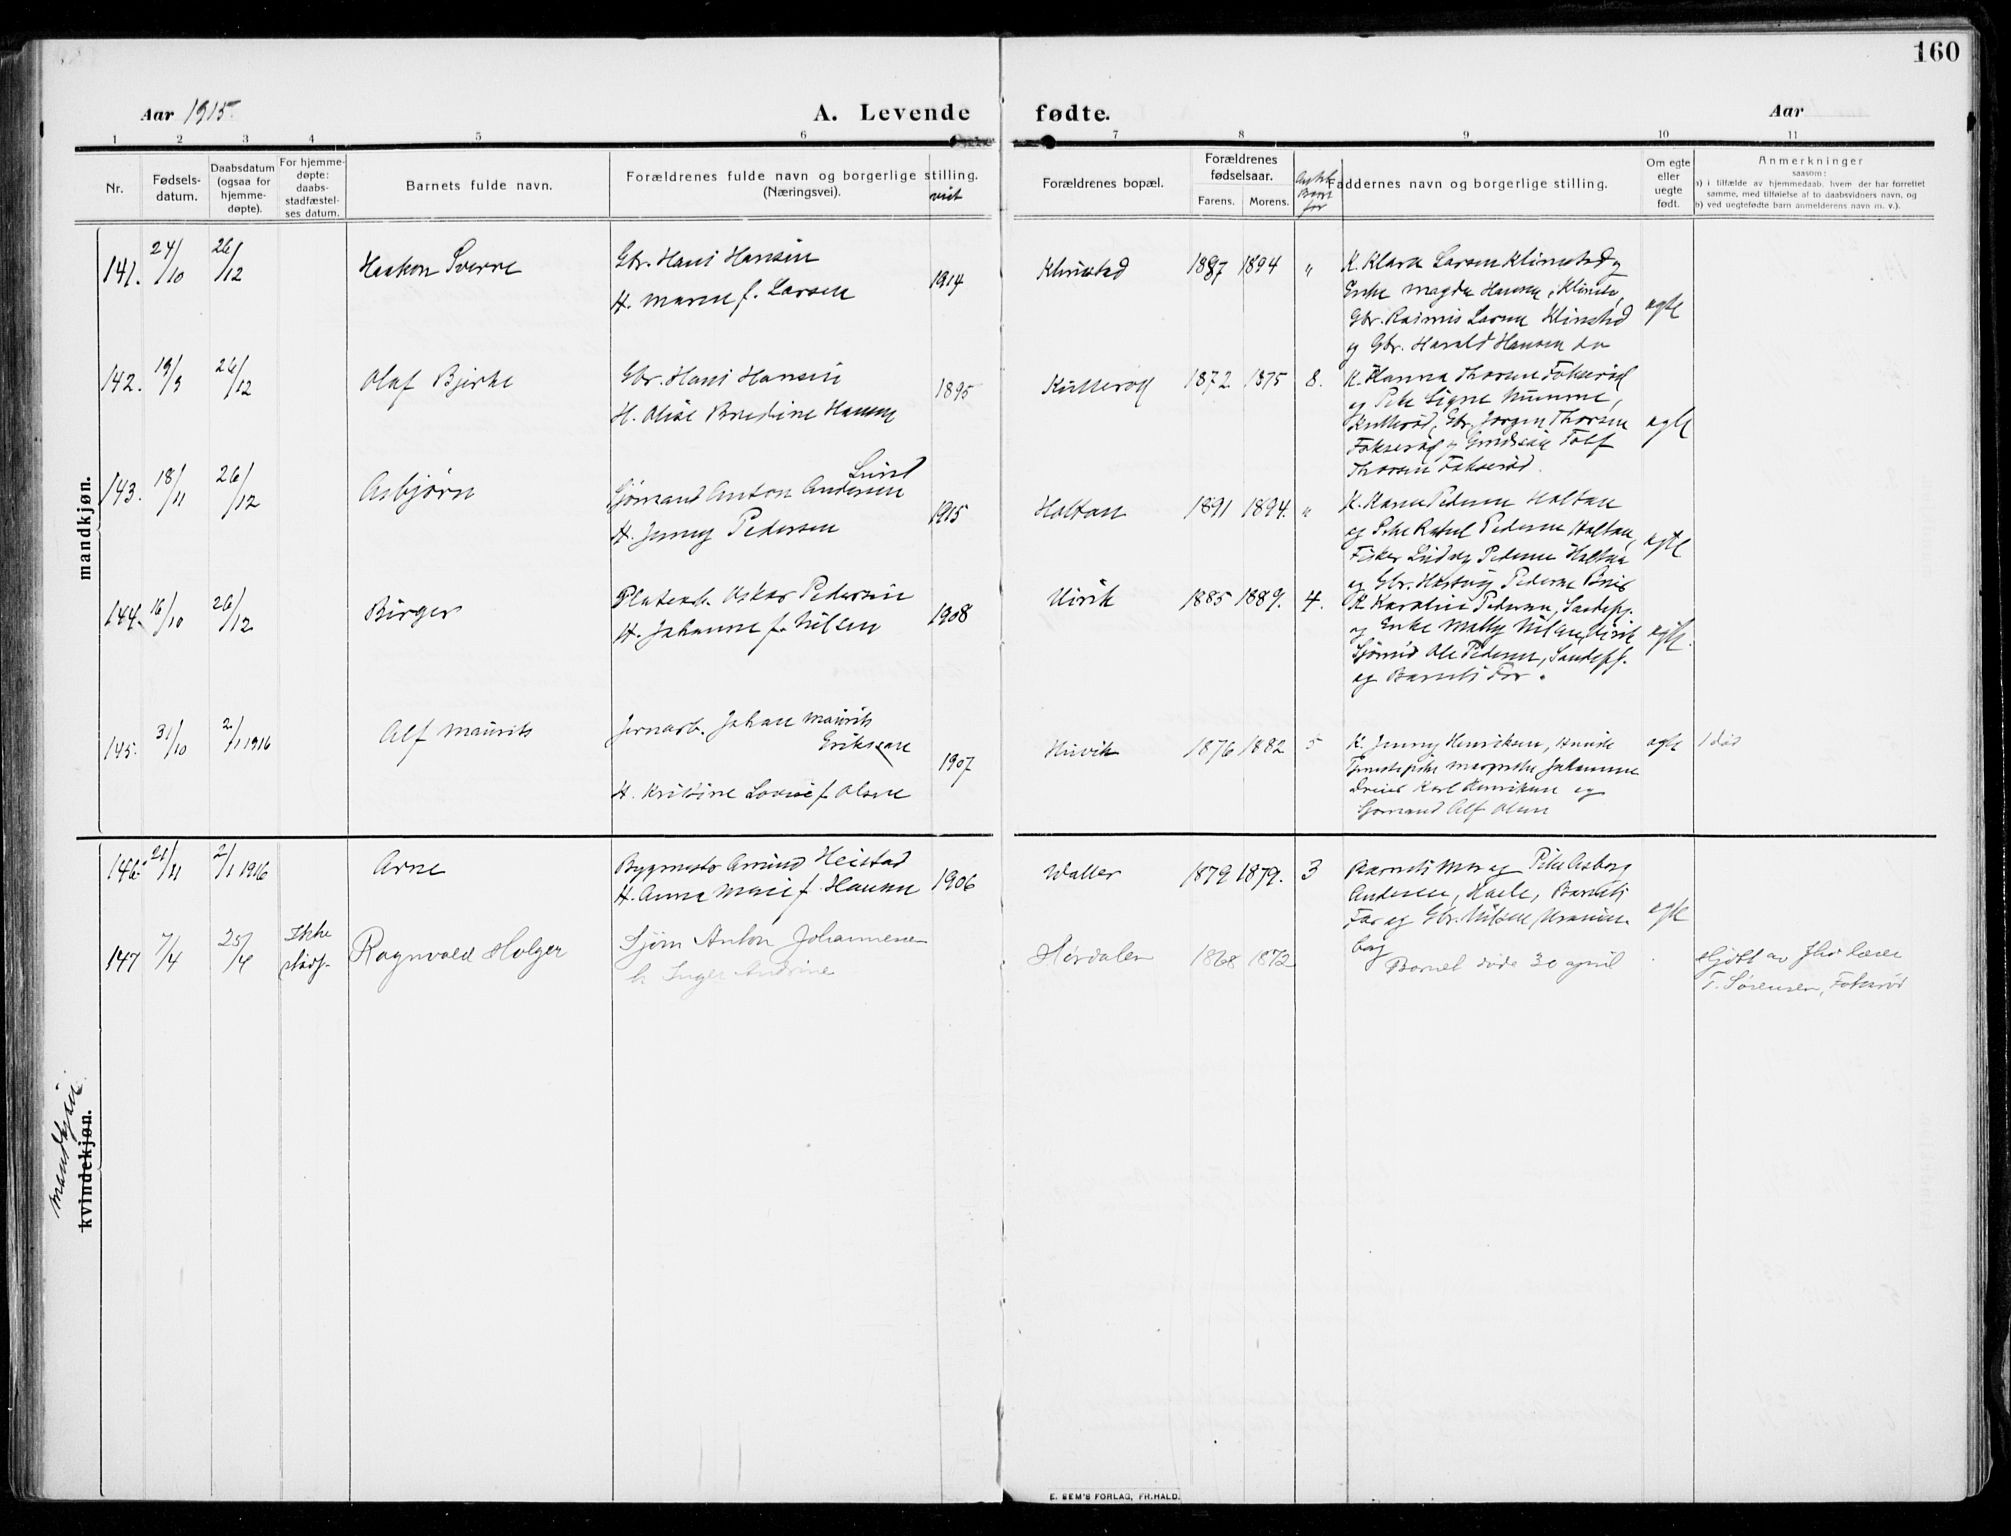 160
Aar 1915.
A. Levende fødte.
Aar
1 2 3 4 5 6 7 8 9 10 11
Nr.
Fødsels-
datum.
Daabsdatum
(ogsaa for
hjemme-
døpte).
For hjemme-
døpte:
daabs-
stadfæstel-
ses datum.
Barnets fulde navn.
Forældrenes fulde navn og borgerlige stilling.
(Næringsvei).
viet
Forældrenes bopæl.
Forældrenes
fødselsaar.
Farens. Morens.
Barn
før
Faddernes navn og borgerlige stilling.
Om egte
eller
uegte
født.
Anmerkninger
saasom:
a) i tilfælde av hjemmedaab, hvem der har forrettet
samme, med tilføielse af to daabsvidners navn, og
b) ved uegtefødte barn anmelderens navn m. v.).
mandkjøn.
141. 24/10 26/12 Haakon Sverre
Gbr. Hans Hansen
H. Maren f. Larsen
1914
Klinestad 1887 1894 "
K. Klara Larsen Klinestad og
Enke Magda Hansen, Klinestad,
Gbr. Rasmus Larsen Klinestad
og Gbr. Harald Hansen do
egte
142. 19/9 26/12 Olaf Bjerke
Gbr. Hans Hansen
H. Olise Bredine Hansen
1895
Kullerød 1872 1875 8.
K. Hanna Thorsen Fokserød
og Pike Signe Numme,
Kullerød, Gbr. Jørgen Thorsen
Fokserød og
Thorsen Fokserød.
egte
143. 18/11 26/12 Asbjørn
Lund
Sjømand Anton Andersen
H. Jenny Pedersen
1915
Haltan 1891 1894. "
K. Karen Pedersen Haltan
og Pike Pedersen Haltan,
Fisker Ludvig Pedersen Haltan
og Gbr. Pedersen
egte
144. 16/10 26/12 Birger
Pladearb. Oskar Pedersen
H. Johanne f. Nilsen
1908
Virik 1885 1889. 4.
K. Karoline Pedersen, Sandefj.
og Enke Nilsen, Virik
Sjømd Ole Pedersen, Sandefj.
og Barnets Far.
egte.
145. 31/10 2/1 1916 Alf Maurits
Jernarb. Johan Maurits
Eriksen
H. Kristine Lovise f. Olsen
1907
Huvik 1876 1882 5
K. Jenny Henriksen,
Tjenestepike Margrethe Johannesen
Dreier Karl Henriksen og
Sjømand Alf Olsen
egte 1 død
mandkjøn
kvindekjøn.
146. 21/11 2/1 1916 Arne
Bygmester Amund Heistad
H. Anna Marie f. Hansen
1906
Valler 1879 1879. 3
Barnets Mor og Pike Asborg
Andersen, Barnets
Far og Gbr. Nilsen,
egte
147 7/4 25/4 Ikke
stadf.
Ragnvald Holger
Sjøm Anton Johannesen
h. Inger Andrine
Hørdalen 1868 1872
Barnet døde 30 april
døbt av Lærer
T. Sørensen, Fokserød
E. SEM'S FORLAG, FR.HALD.